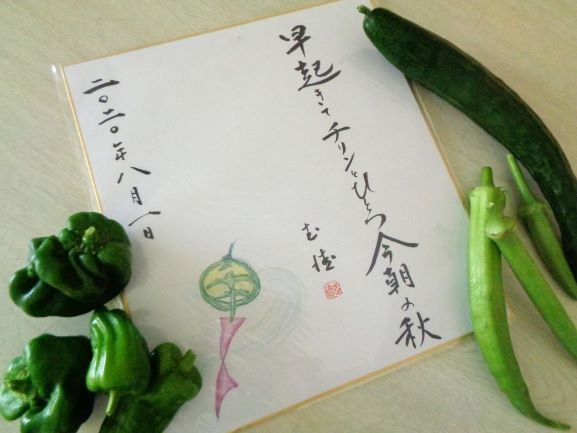 早起きてチリンとひとつ今朝の秋
二〇二〇年八月一日